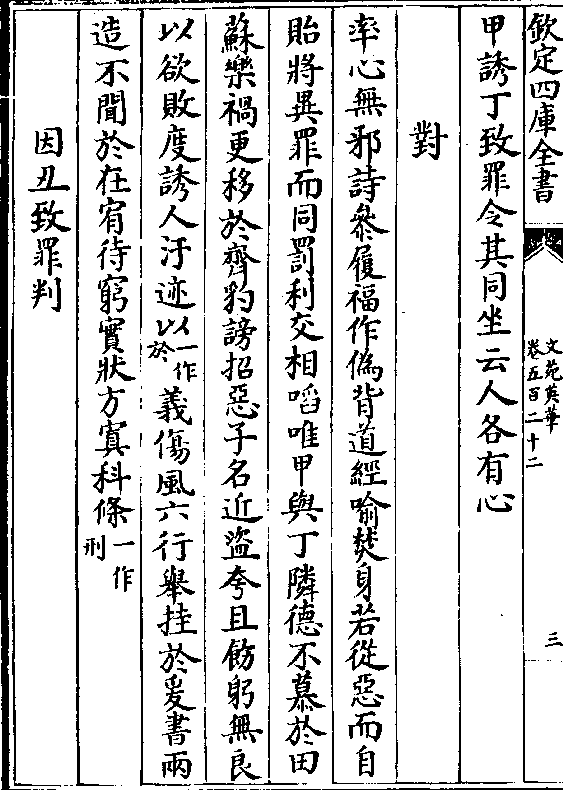 欽定四庫全書
文苑英華
卷五百二十二
三
甲誘丁致罪令其同坐云人各有心
對
率心無邪詩叅履福作偽背道經喻焚身若從惡而自
貽將異罪而同罰利交相㗖唯甲與丁隣德不慕於田
蘇樂禍更移於齊豹謗招惡子名近盜夸且飭躬無良
以欲敗度誘人汙迹以一作於義傷風六行舉挂於爰書兩
造不聞於在宥待窮實狀方寘科條一作刑
因丑致罪判